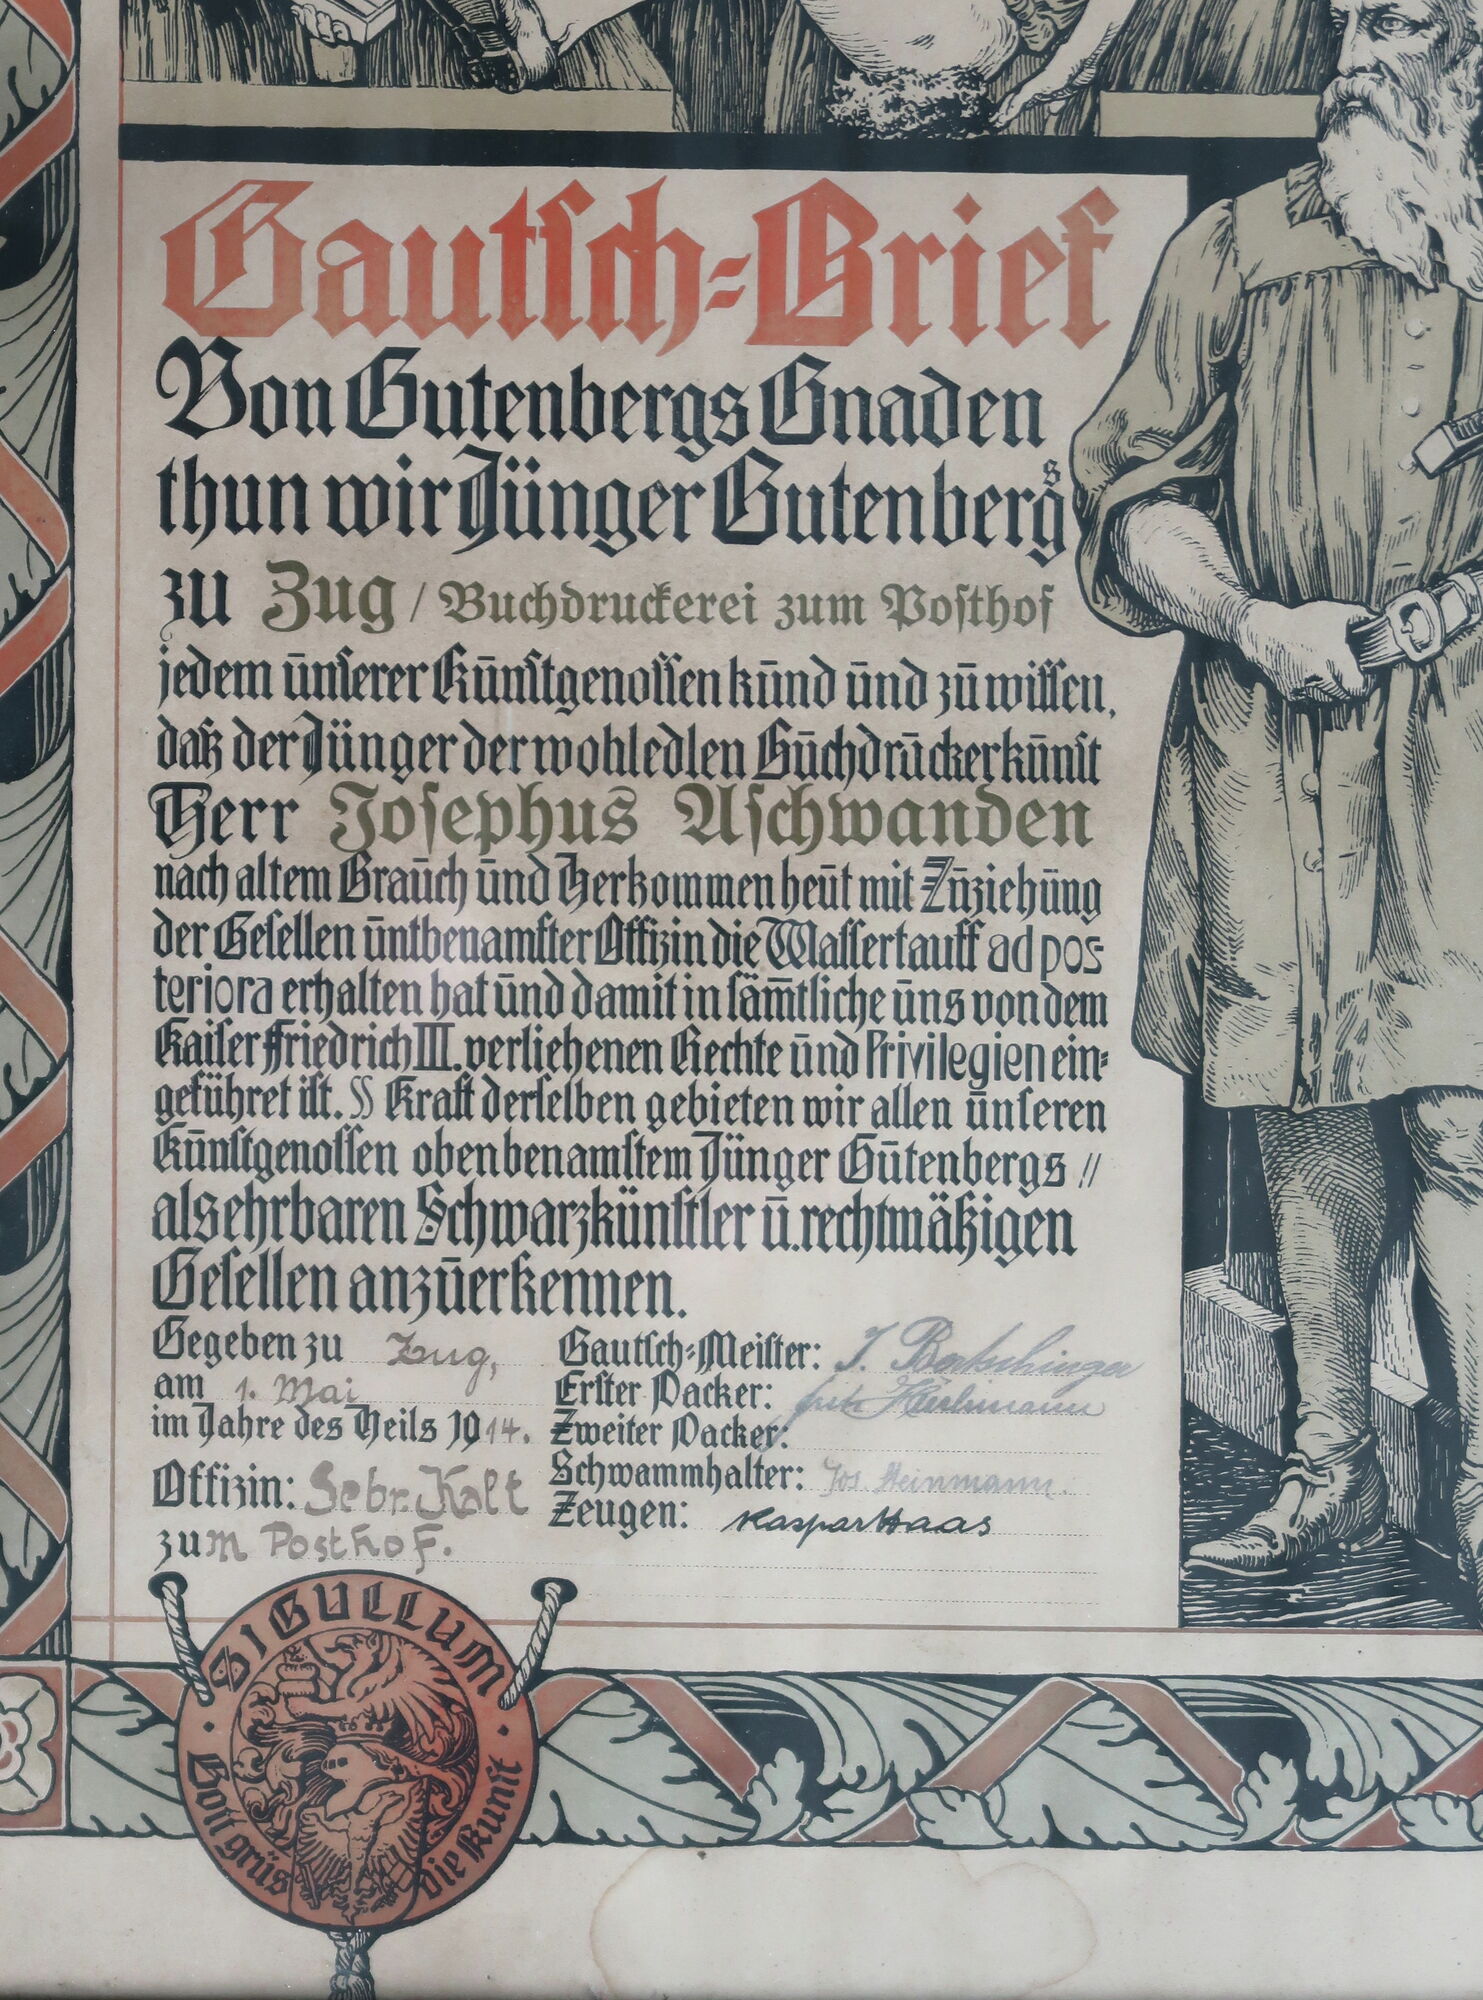 Gautsch-Brief
Von Gutenbergs Gnaden
thun wir Jünger Gutenbergs
zu Zug / Buchdruckerei zum Posthof
jedem unserer Kunstgenossen kund und zu wissen,
daß der Jünger der wohledlen Buchdruckerkunst
Herr Josephus Aschwanden
nach altem Brauch und Herkommen heut mit Zuziehung
der Gesellen untbenamster Offizin die Wassertauff ad pos-
teriora erhalten hat und damit in sämtliche uns von dem
Kaiser Friedrich III. verliehenen Rechte und Privilegien ein-
geführet ist. §§ Kraft derselben gebieten wir allen unseren
Kunstgenossen obenbenamstem Jünger Gutenbergs //
als ehrbaren Schwarzkünstler u. rechtmäßigen
Gesellen anzuerkennen.
Gegeben zu Zug,
am 1. Mai
im Jahre des Heils 1914.
Offizin: Gebr. Kalt
zum Posthof.
Gautsch-Meister: J. Bertschinger
Erster Packer:
Zweiter Packer:
Schwammhalter: Jos. Heinmann.
Zeugen: Kaspar Haas
SIGULLUM
Gott grüs die Kunst